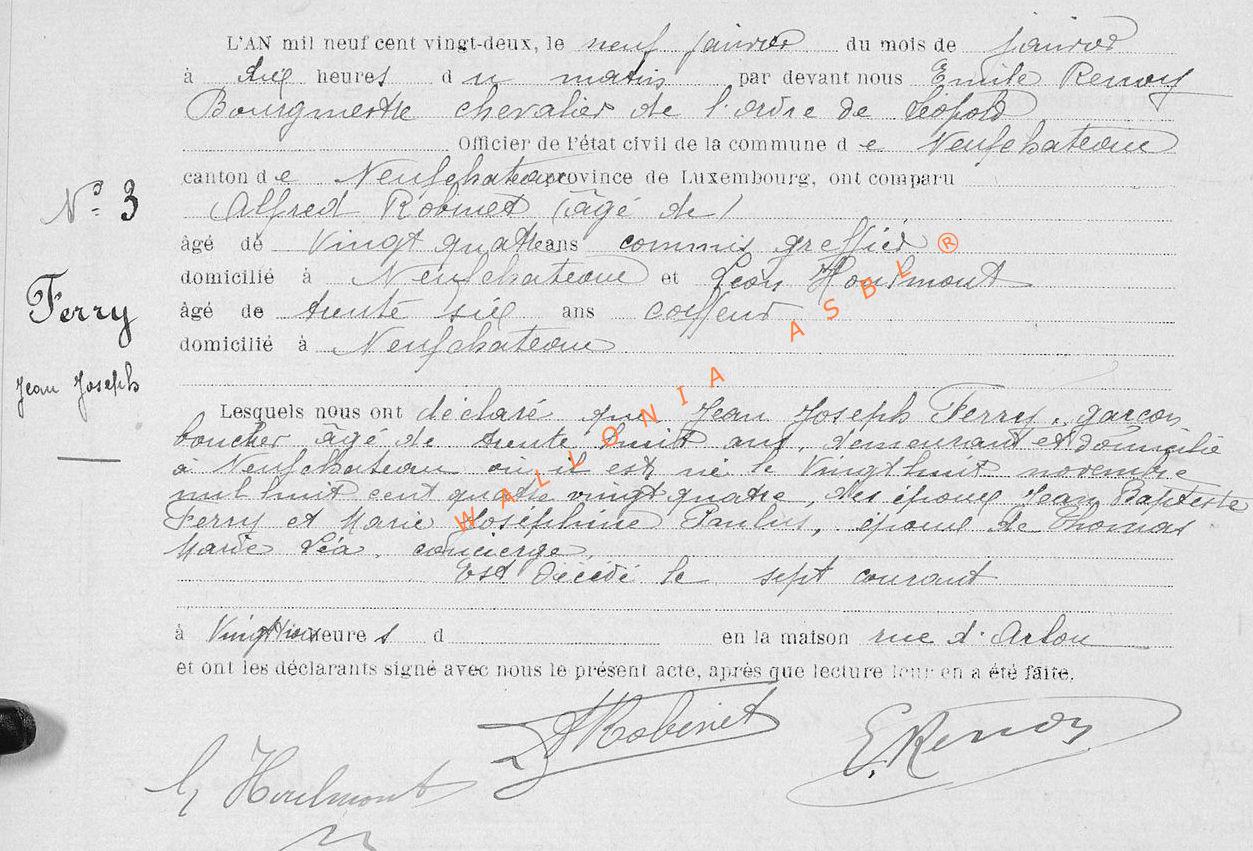 L'AN mil neuf cent vingt-deux, le neuf janvier du mois de janvier
à dix heures du matin par devant nous Emile Renoy
Bourgmestre chevalier de l'ordre de Léopold
Officier de l'état civil de la commune de Neufchateau
canton de Neufchateau province de Luxembourg, ont comparu
Alfred Robinet (âgé de)
âgé de Vingt quatre ans commis greffier
domicilié à Neufchateau et Léon Houlmont
âgé de trente six ans coiffeur
domicilié à Neufchateau
N° 3
Ferry
Jean Joseph
Lesquels nous ont déclaré que Jean Joseph Ferry, garçon
boucher âgé de trente huit ans, demeurant et domicilié
à Neufchateau où il est né le Vingt huit novembre
mil huit cent quatre vingt quatre, des époux Jean Baptiste
Ferry et Marie Joséphine Paulus, époux de Thomas
Marie Léa, concierge,
Est décédé le sept courant
à Vingt heures d en la maison rue d'Arlon
et ont les déclarants signé avec nous le présent acte, après que lecture leur en a été faite.
A Robinet
E. Renoy
L Houlmont
WALLONIA ASBL ®